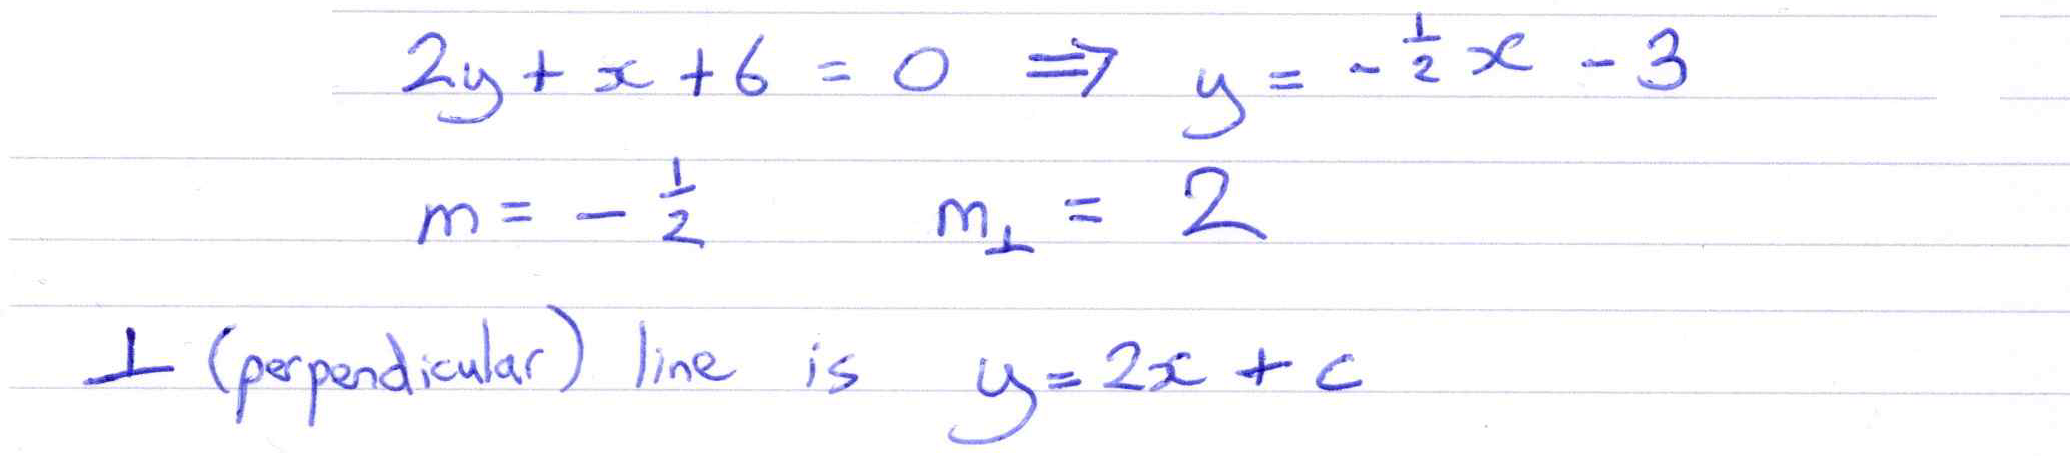 2y + x + 6 = 0 ⇒ y = -½x - 3
m = -½ m⊥ = 2
⊥ (perpendicular) line is y = 2x + c